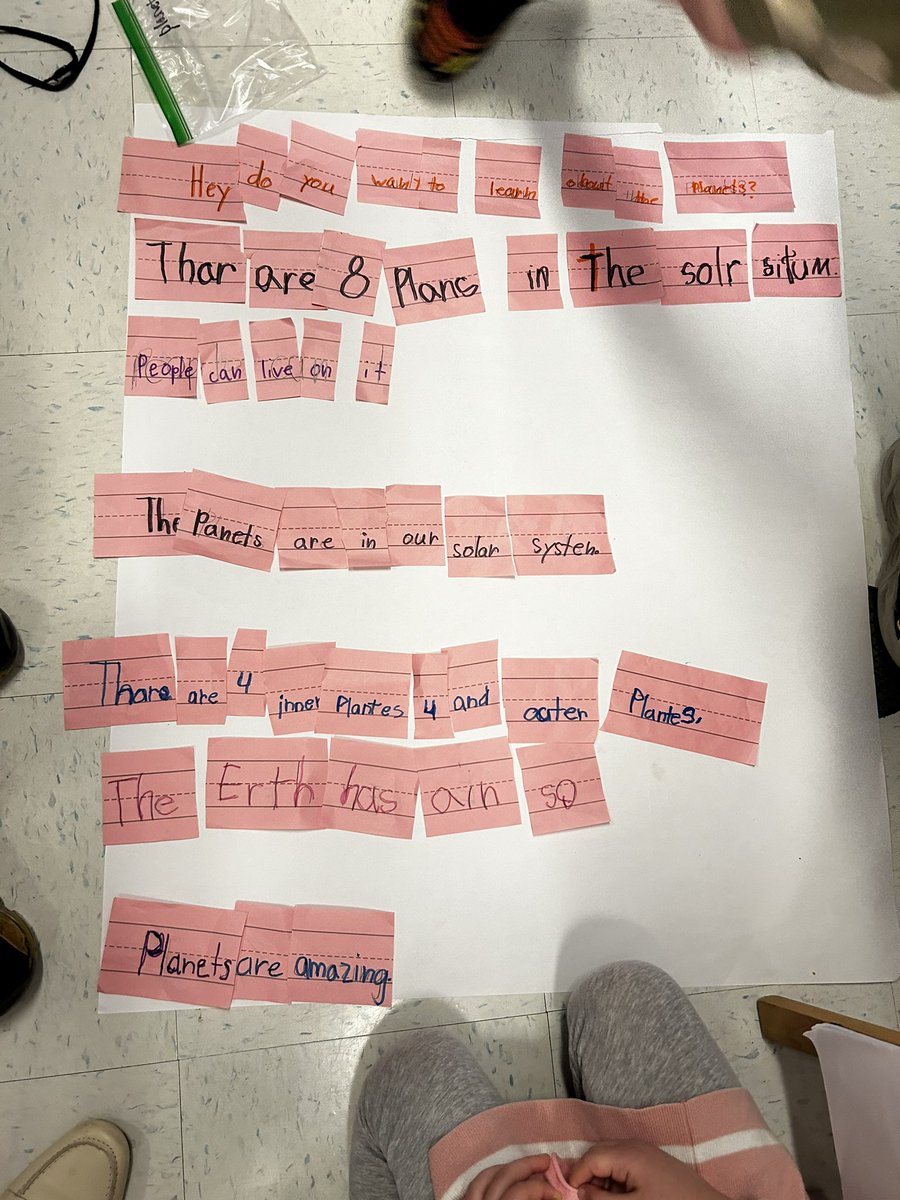 plane
Hey do you want to learn about the Planets?
Thar are 8 Plans in The solr situm.
People can live on it
The Panets are in our solar system.
Thare are 4 inner Plantes 4 and outer Plantes.
The Erth has air so
Planets are amazing.